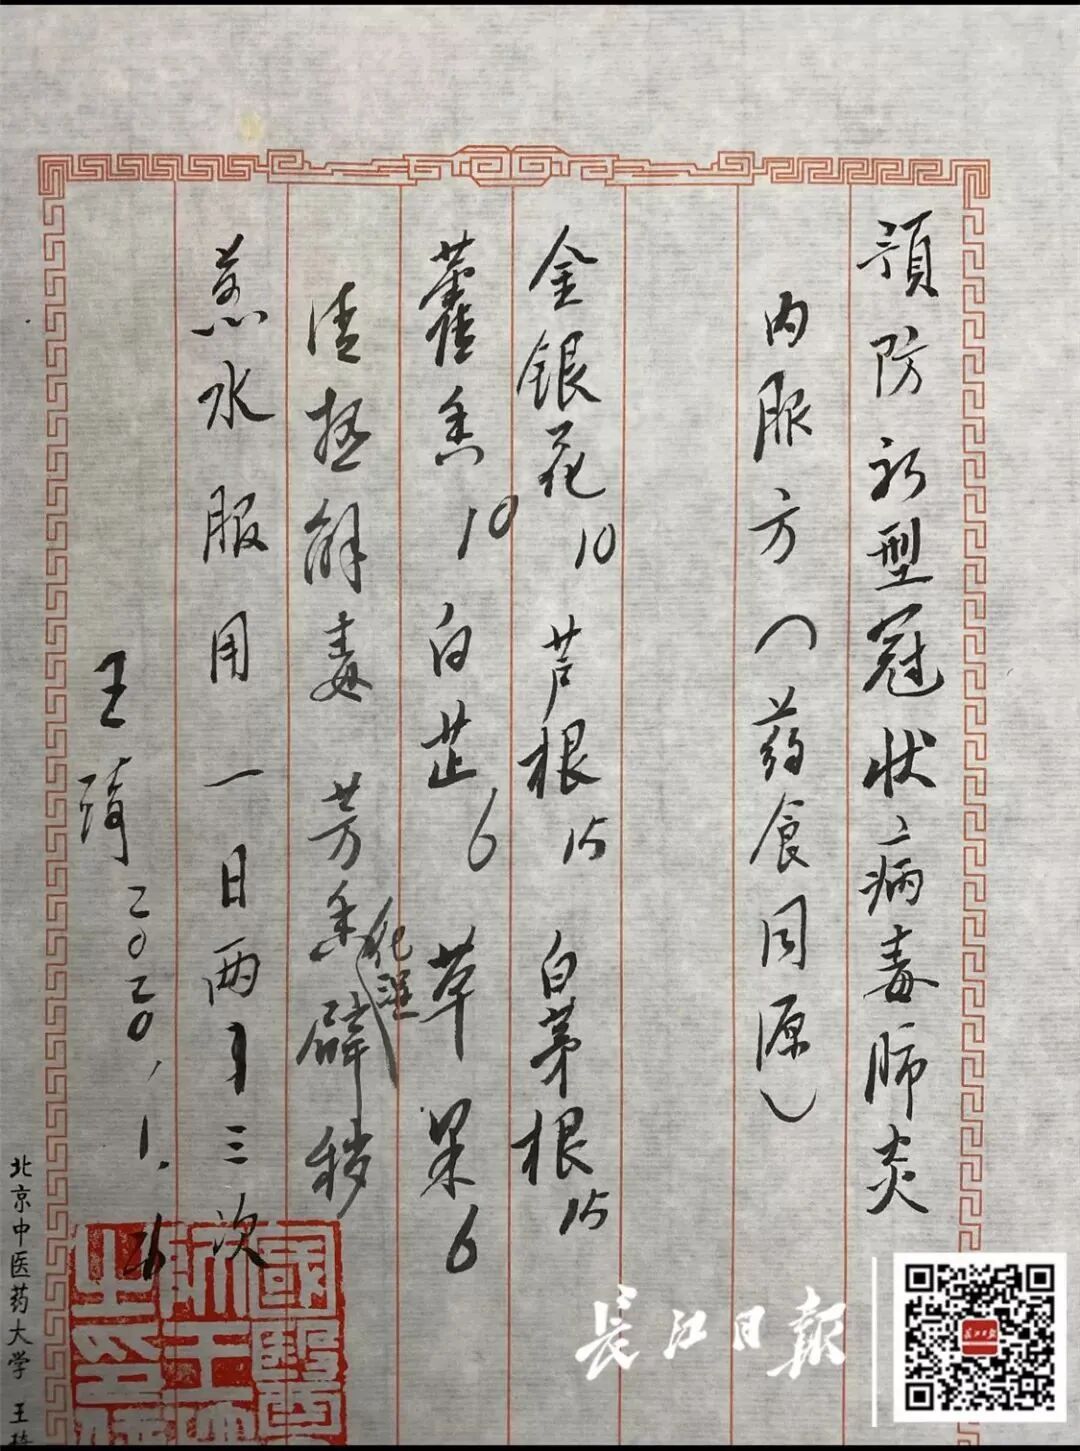 预防新型冠状病毒肺炎
内服方（药食同源）
金银花10 芦根15 白茅根15
藿香10 白芷6 草果6
清热解毒 芳香化湿辟秽
煎水服用一日两 三次
王琦 二〇二〇.1.
北京中医药大学 王琦
长江日报
长江日报